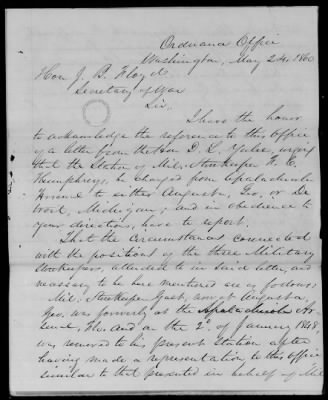 Ordnance Office
Washington, May 24, 1860
Hon J. B. Floyd
Secretary of War
Sir,
I have the honor
to acknowledge the reference to this Office
of a letter from the Hon D. L. Yulee, urging
that the Station of Mil. Storekeeper F. C.
Humphreys, be changed from Apalachicola
Arsenal to either Augusta, Geo. or De
troit, Michigan; and in obedience to
your directions, have to report.
That the circumstances connected
with the positions of the three Military
Storekeepers, alluded to in said letter, and
necessary to be here mentioned are as follows;
Mil. Storekeeper Gast, now at Augusta,
Geo. was formerly at the Apalachicola Ar
senal, Flo. and on the 2d of January 1848,
was removed to his present Station after
having made a representation to this office
similar to that presented in behalf of Mil